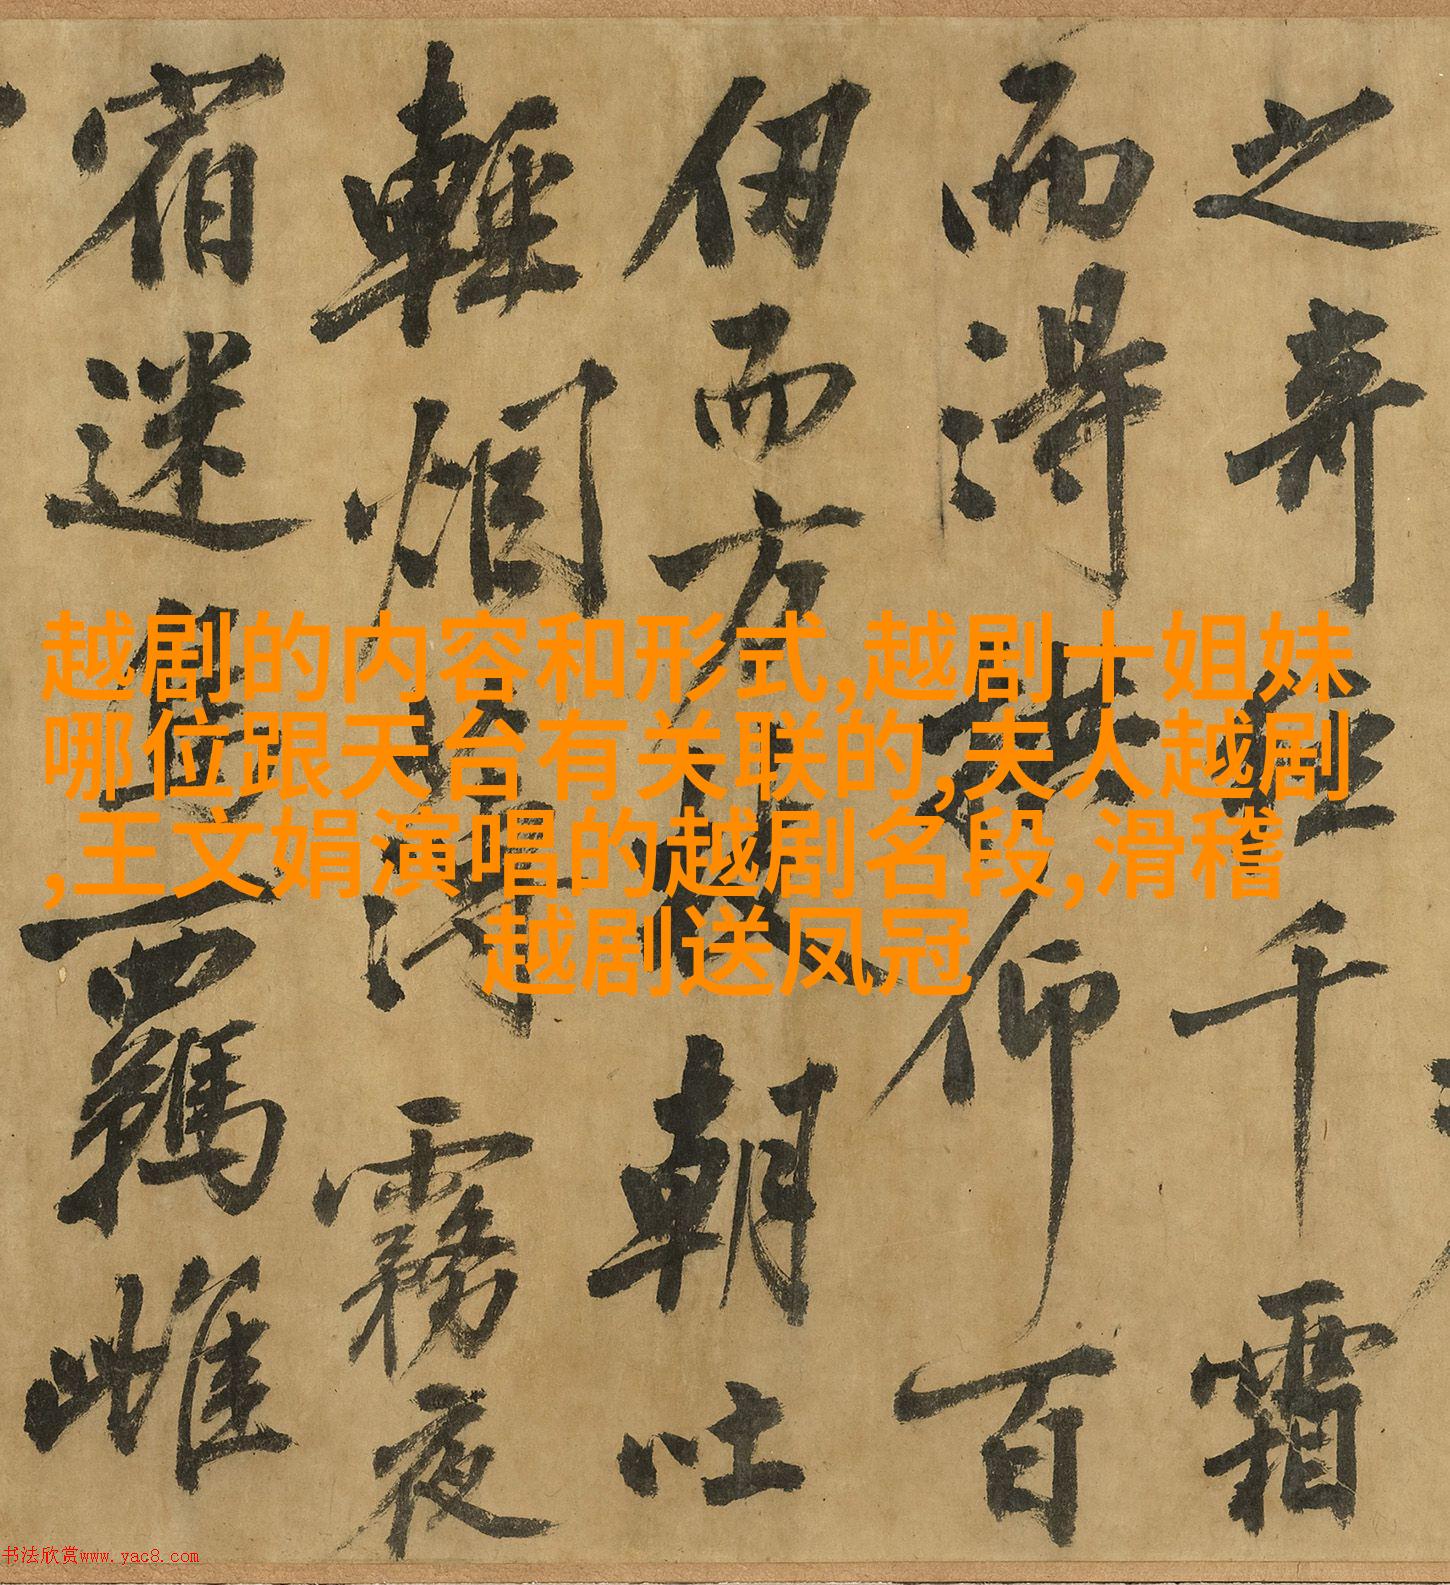 之奇經千霜
而得拱仰百
仞而方枝朝吐
輕烟薄霧夜
宿迷鳥羈雌
越剧的内容和形式,越剧十姐妹
哪位跟天台有关联的,夫人越剧
,王文娟演唱的越剧名段,滑稽
越剧送凤冠
书法欣赏www.yac8.com